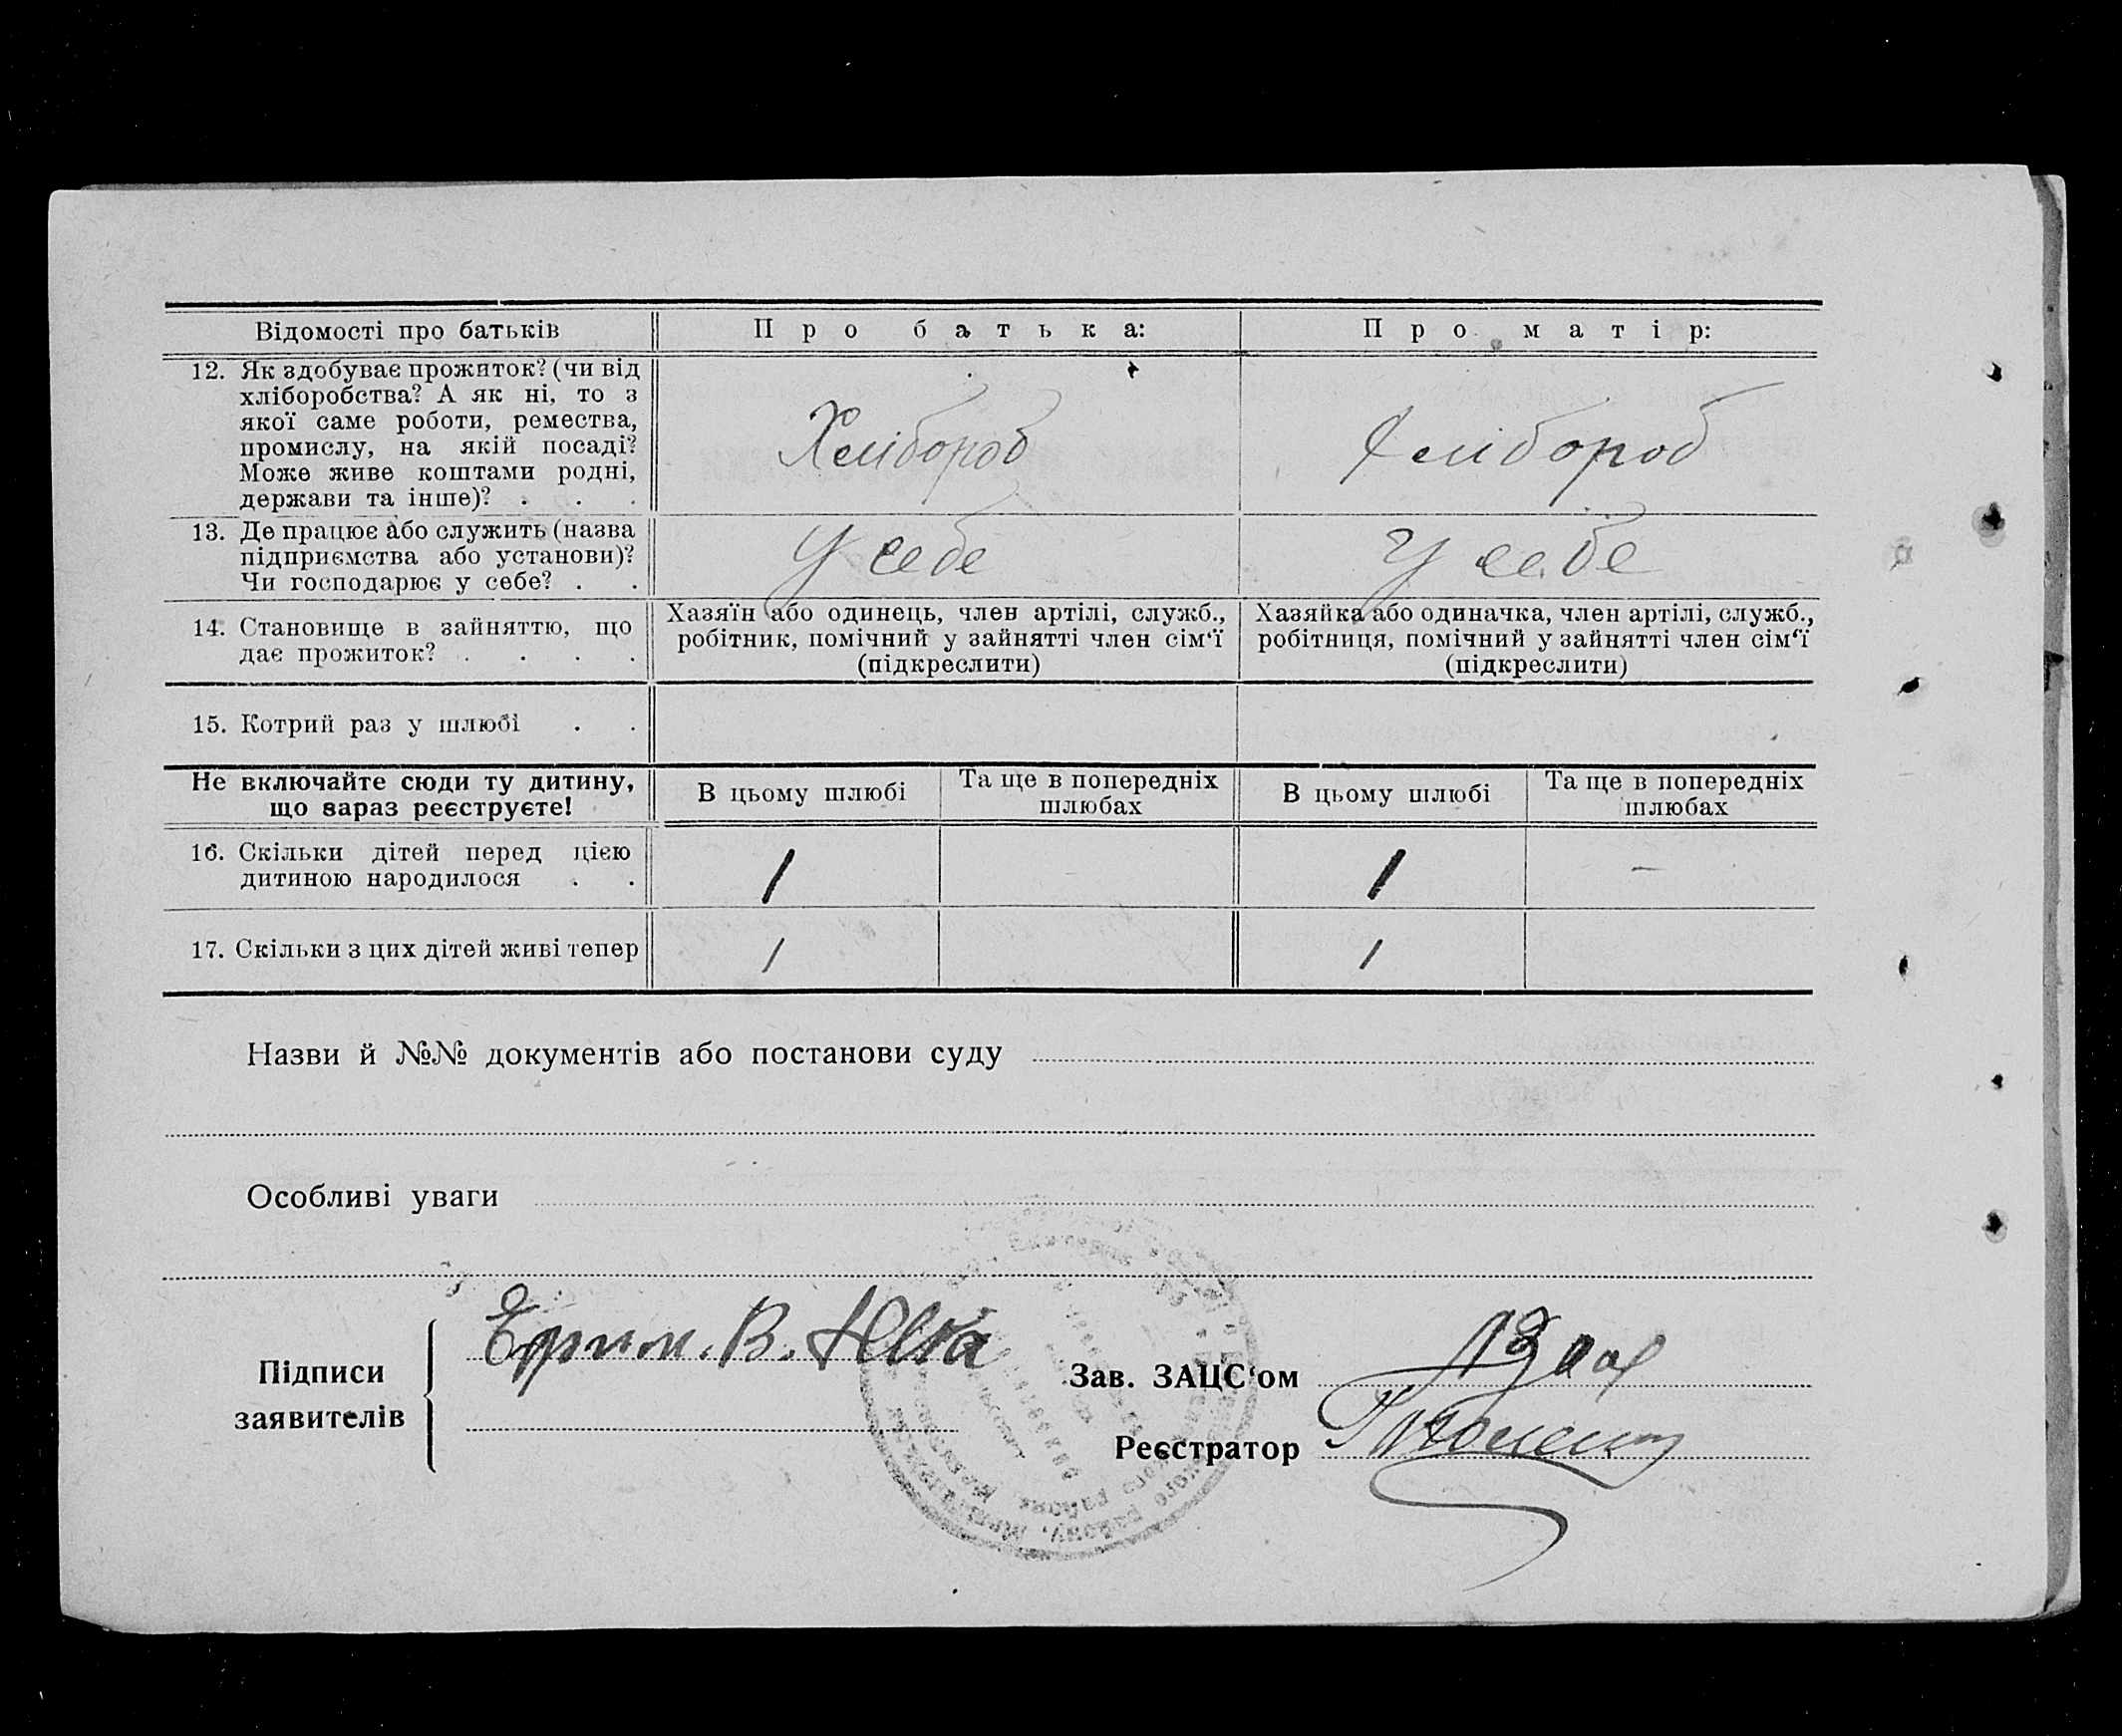 Відомості про батьків
Про батька:
Про матір:
12. Як здобуває прожиток? (чи від
хліборобства? А як ні, то з
якої саме роботи, ремества,
промислу, на якій посаді?
Може живе коштами родні,
держави та інше)? . . .
Хлібороб
Хлібороб
13. Де працює або служить (назва
підприємства або установи)?
Чи господарює у себе? . .
У себе
У себе
14. Становище в зайняттю, що
дає прожиток? . . . .
Хазяїн або одинець, член артілі, служб.,
робітник, помічний у зайнятті член сім‘ї
(підкреслити)
Хазяйка або одиначка, член артілі, служб.,
робітниця, помічний у зайнятті член сім‘ї
(підкреслити)
15. Котрий раз у шлюбі . .
Не включайте сюди ту дитину,
що зараз реєструєте!
В цьому шлюбі
Та ще в попередніх
шлюбах
В цьому шлюбі
Та ще в попередніх
шлюбах
16. Скільки дітей перед цією
дитиною народилося . .
1
1
—
17. Скільки з цих дітей живі тепер
1
1
Назви й №№ документів або постанови суду
Особливі уваги
Підписи
заявителів
В.
Зав. ЗАЦС‘ом
Реєстратор